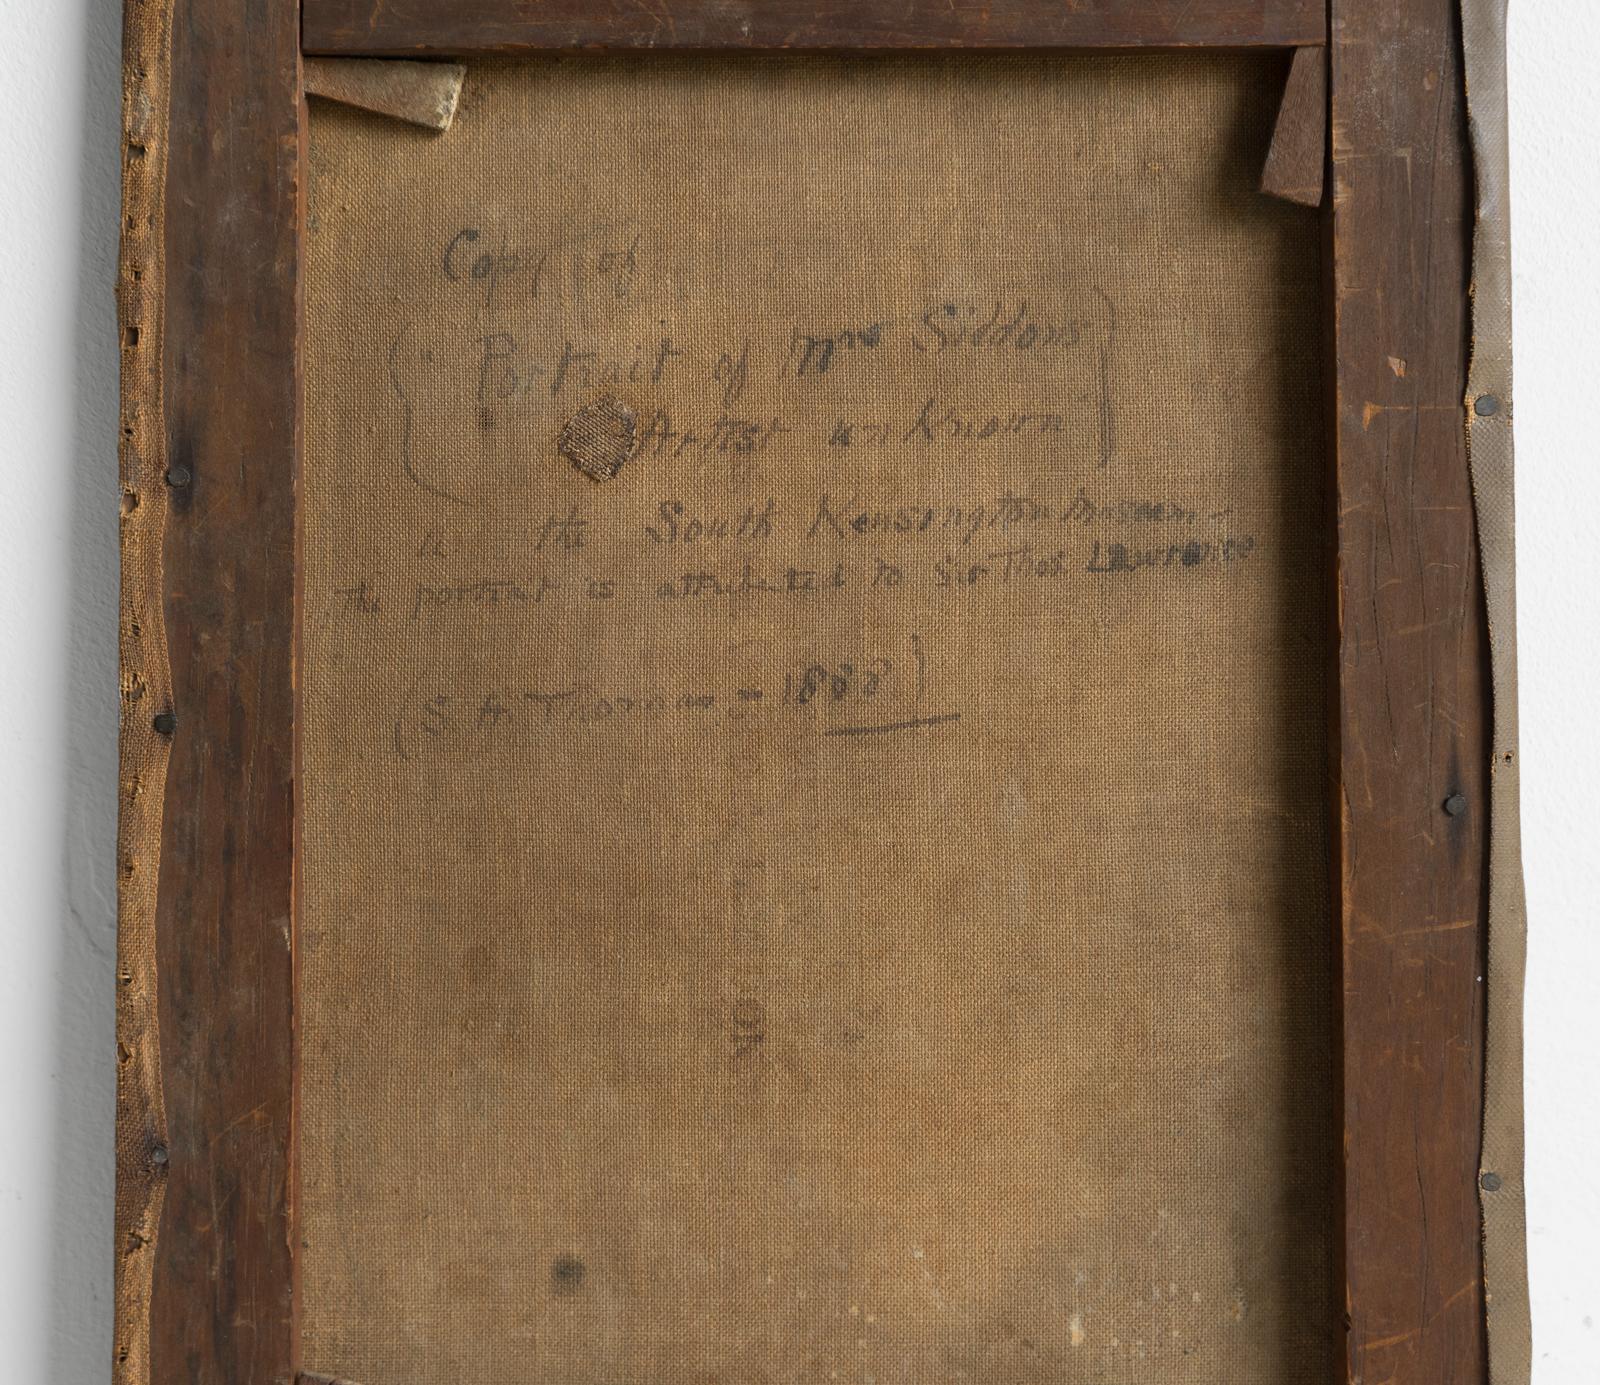 Copy of
( Portrait of Mrs Siddons )
Artist unknown
in the South Kensington Museum -
the portrait is attributed to Sir Thos Lawrence
(S. A. Thomas - 1888)